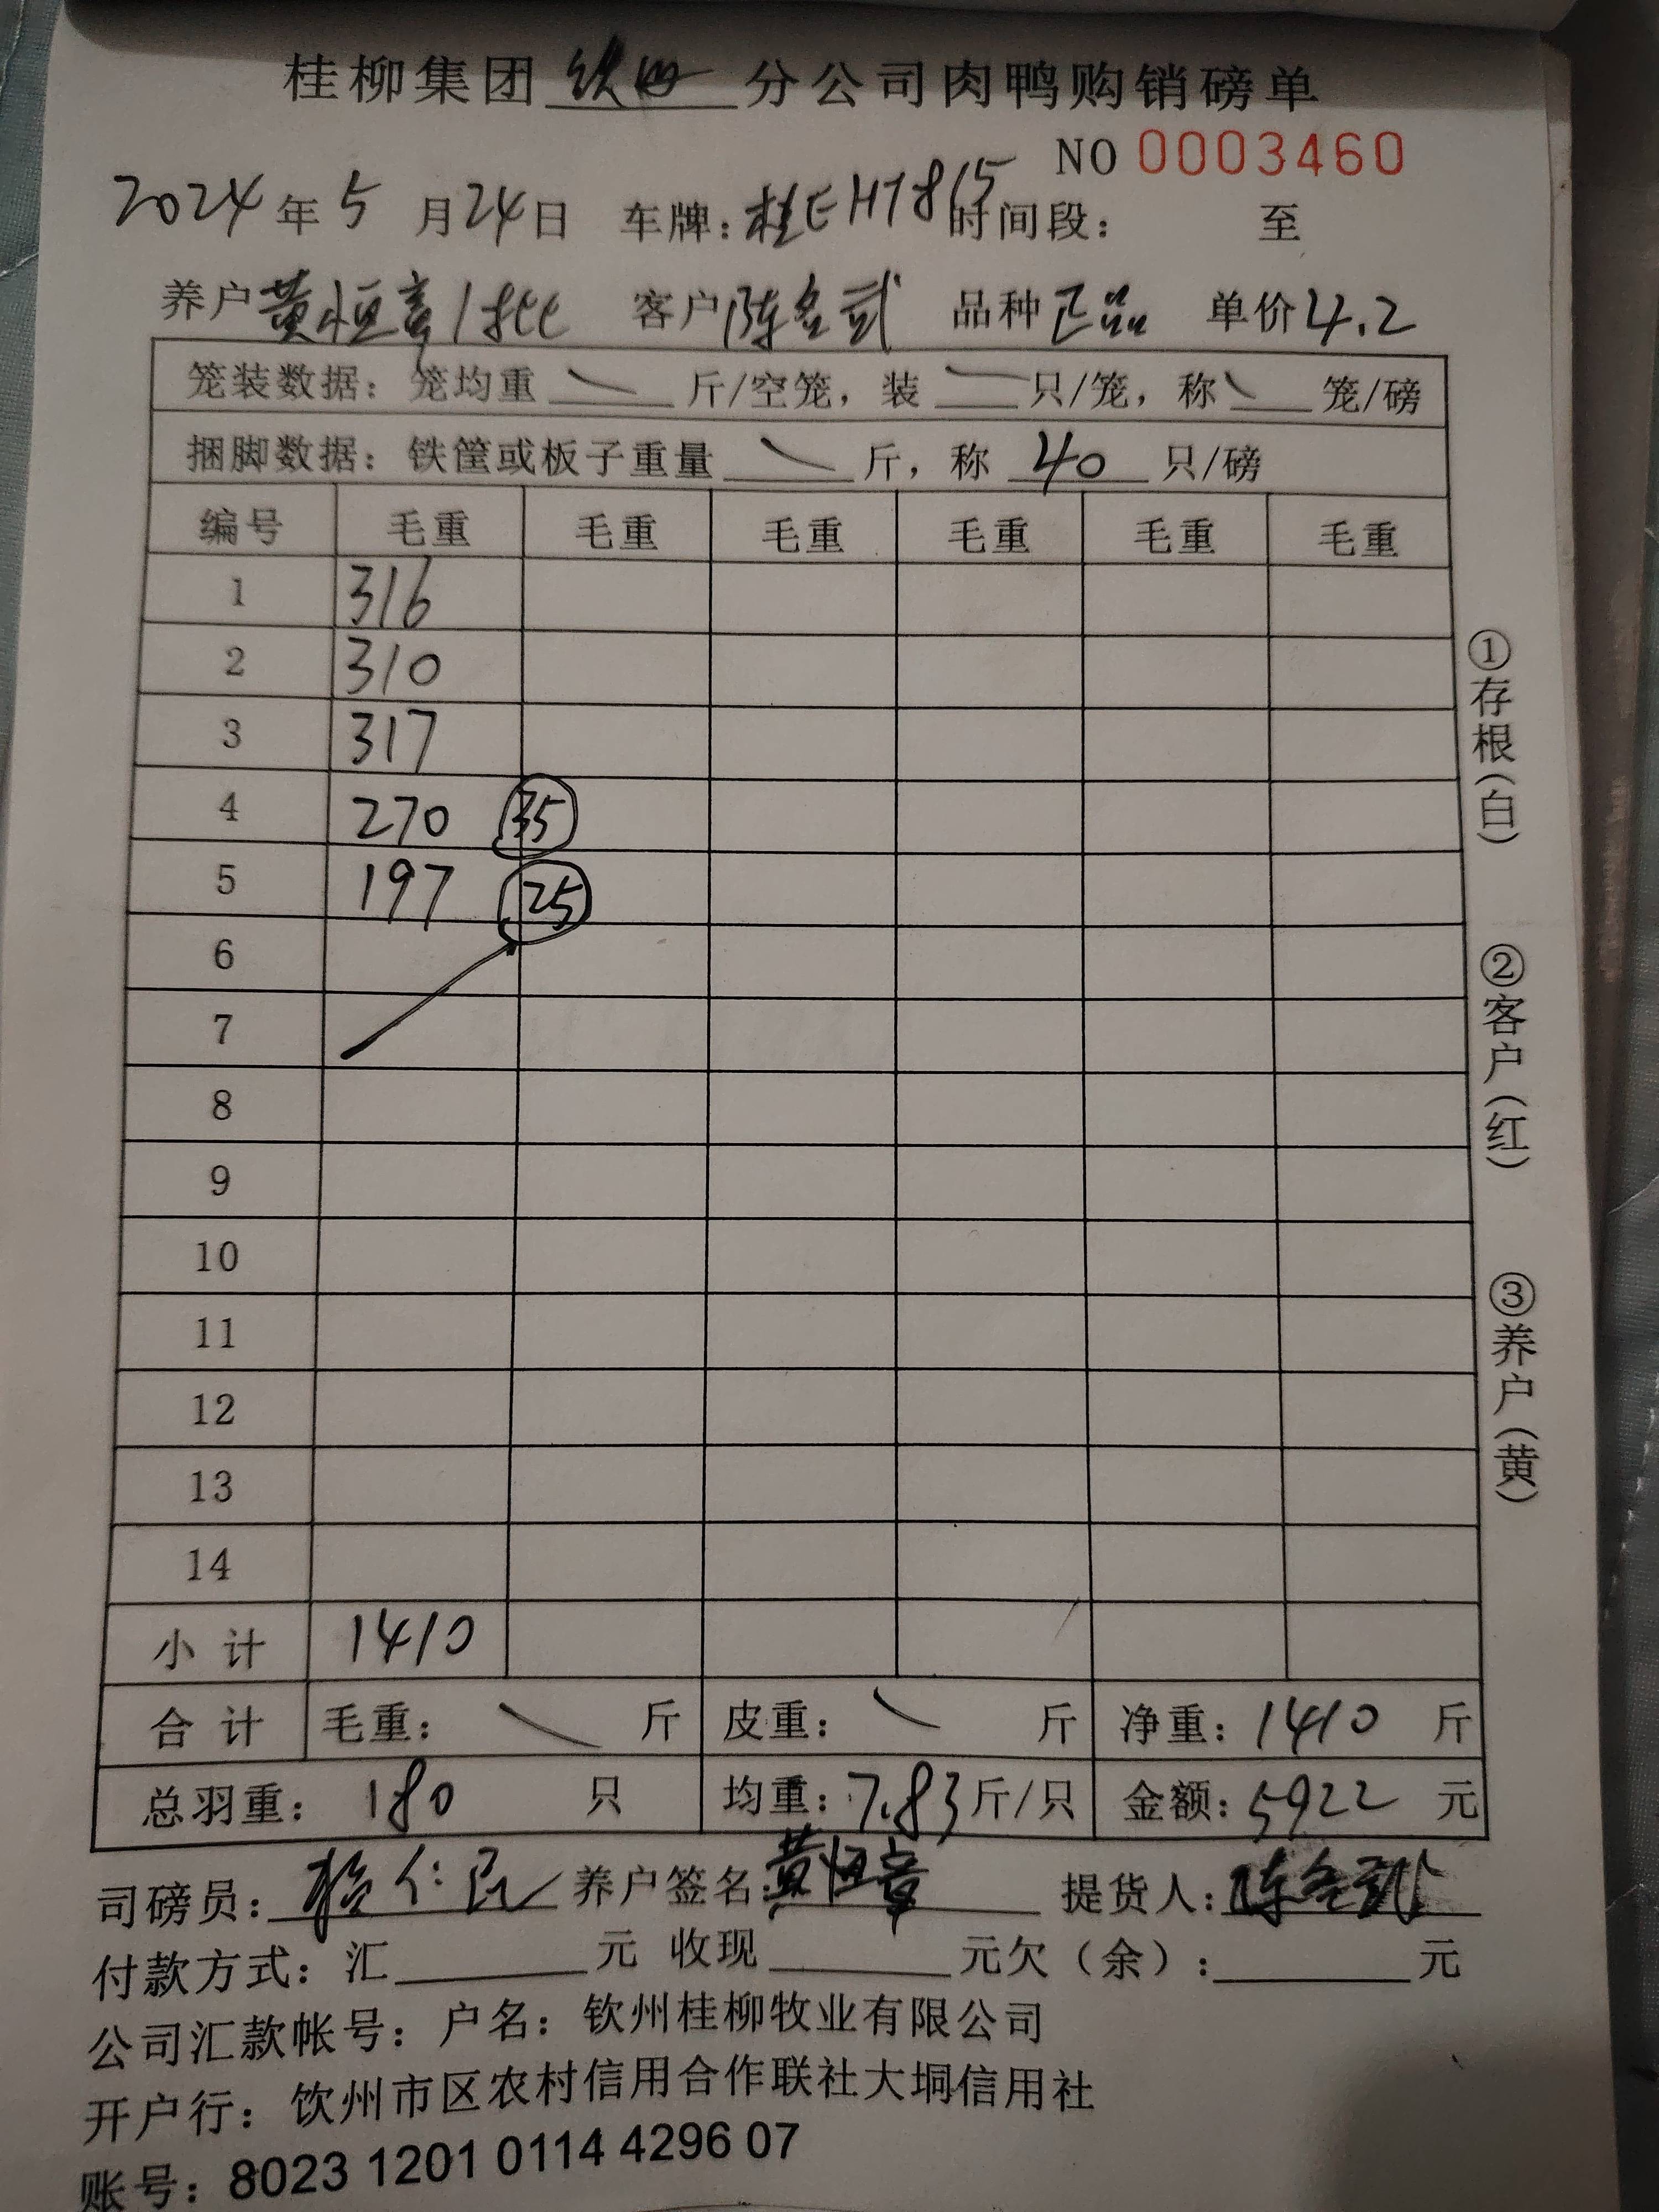 桂柳集团 钦州 分公司肉鸭购销磅单
NO 0003460
2024年5月24日 车牌:桂EHT815 时间段: 至
养户 黄恒章1批 客户 陈名武 品种 正品 单价 4.2
笼装数据: 笼均重 斤/空笼, 装 只/笼, 称 笼/磅
捆脚数据: 铁筐或板子重量 斤, 称 40 只/磅
编号 毛重 毛重 毛重 毛重 毛重 毛重
1 316
2 310
3 317
4 270 35
5 197 25
6
7
8
9
10
11
12
13
14
小计 1410
合计 毛重: 斤 皮重: 斤 净重: 1410 斤
总羽重: 180 只 均重: 7.83 斤/只 金额: 5922 元
司磅员: 仁民 养户签名: 黄恒章 提货人: 陈名武
付款方式: 汇 元 收现 元欠(余): 元
公司汇款帐号: 户名: 钦州桂柳牧业有限公司
开户行: 钦州市区农村信用合作联社大垌信用社
账号: 8023 1201 0114 4296 07
①存根(白)
②客户(红)
③养户(黄)